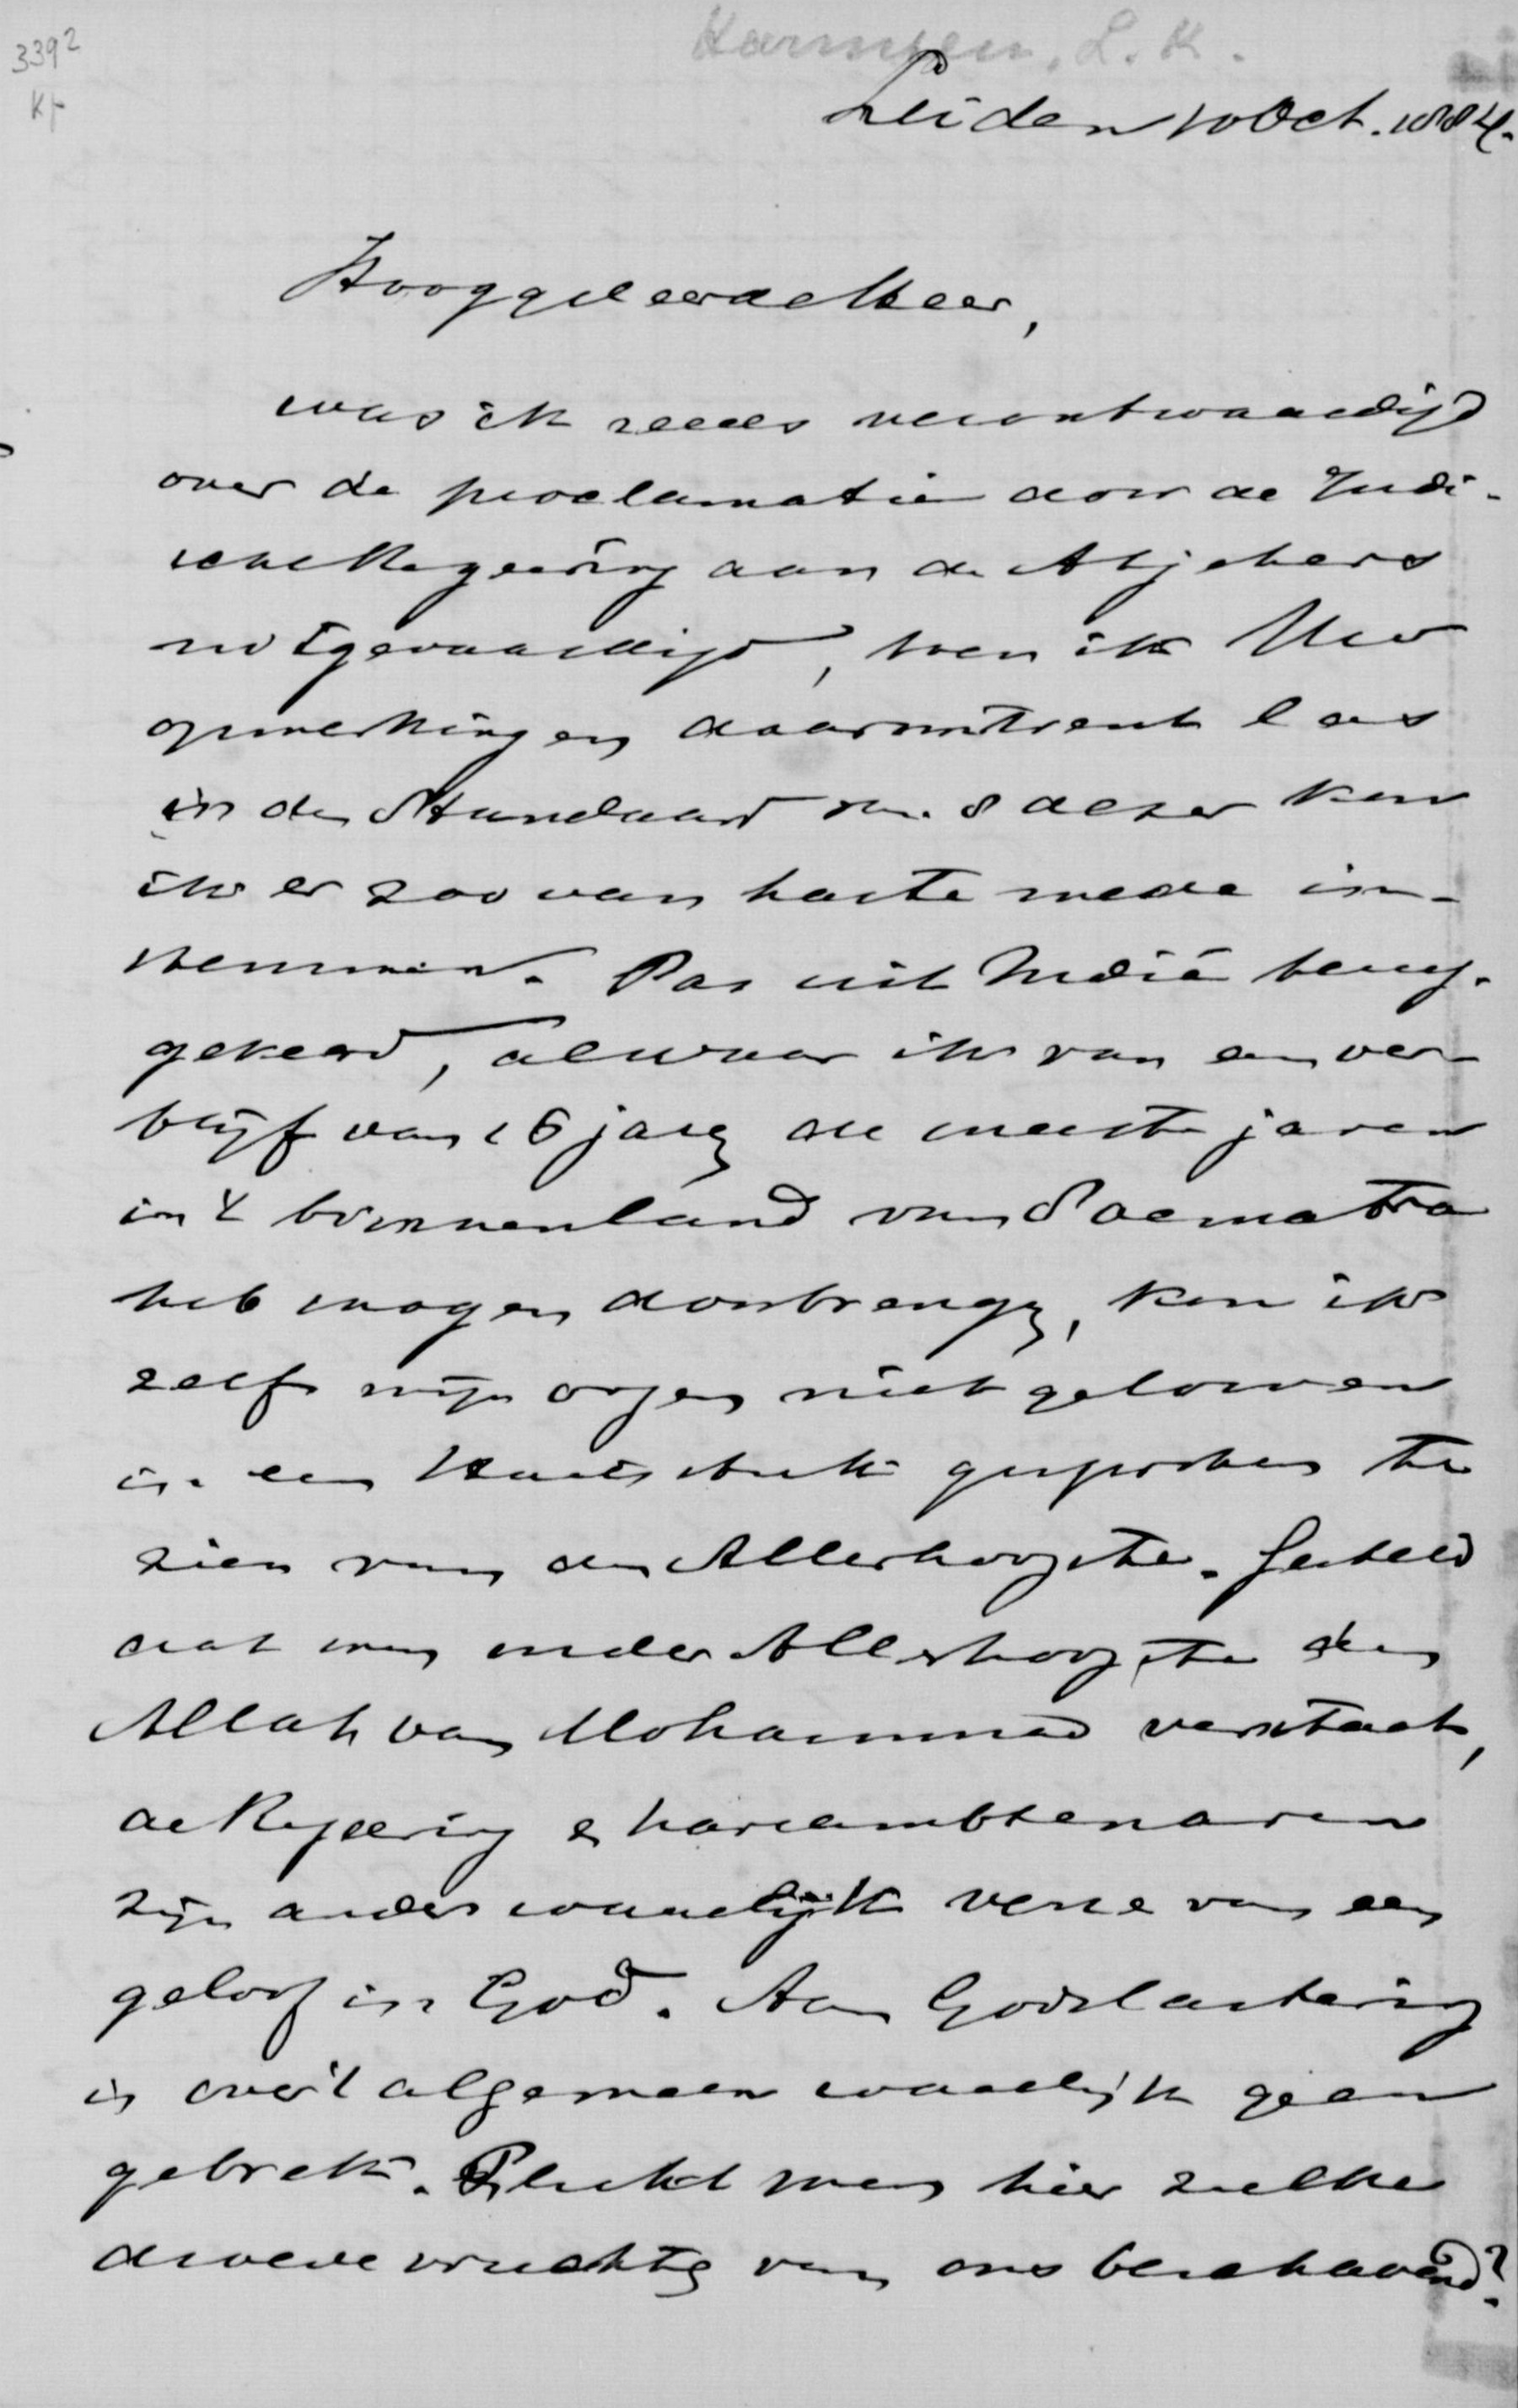 3392
Kt
Harmsen, L. K.
Leiden 10 Oct. 1884.
Hooggeleerde Heer,
was ik reeds verontwaardigd
over de proclamatie door de Indi-
sche Regeering aan de Atjehers
uitgevaardigd, toen ik Uw
opmerkingen daaromtrent las
in den Standaard van 8 dezer kon
ik er zoo van harte mede in-
stemmen. Pas uit Indië terug-
gekeerd, alwaar ik van een ver-
blijf van 16 jaren de meeste jaren
in 't binnenland van Soematra
heb mogen doorbrengen, kon ik
zelfs mijn oogen niet gelooven
in een Staatsstuk gesproken te
zien van den Allerhoogste. Gesteld
dat men onder Allerhoogste den
Allah van Mohammed verstaat,
de Regeering en hare ambtenaren
zijn anders waarlijk verre van een
geloof in God. Aan Godslastering
is over 't algemeen waarlijk geen
gebrek. Plukt men hier zulke
droeve vruchten van ons beschavend?